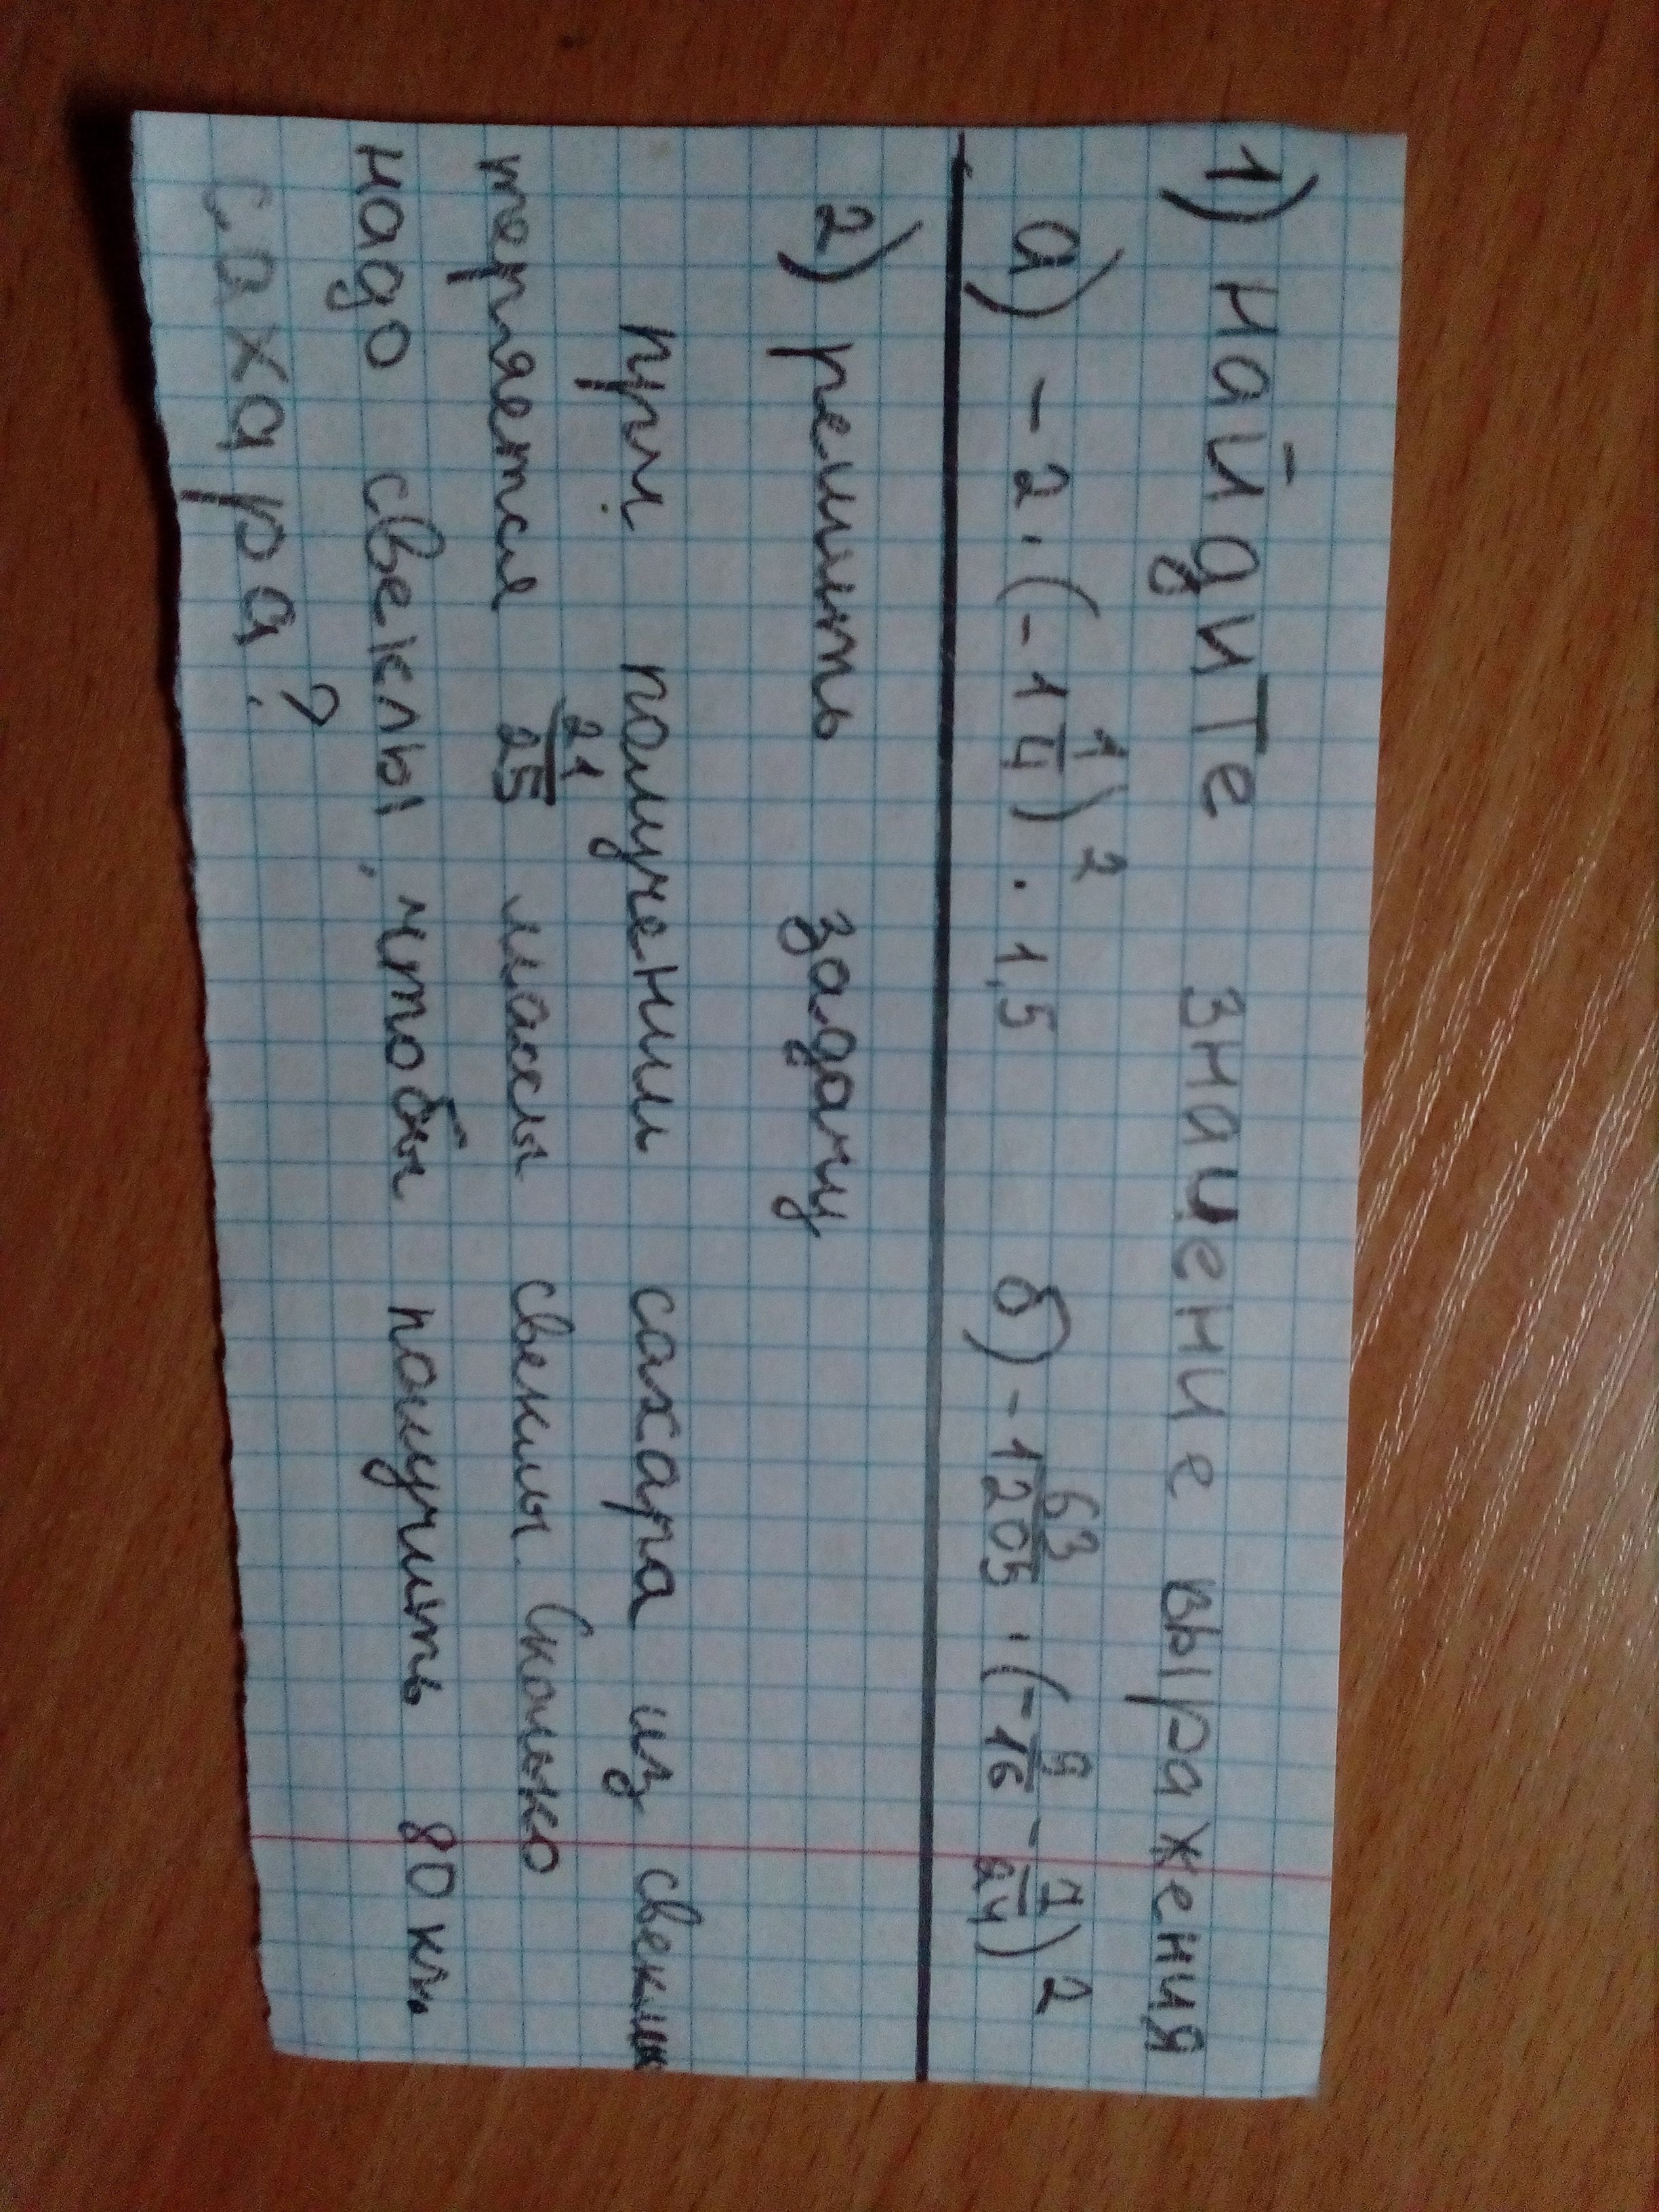 1) найдите значение выражения
а) -2·(-1 1/4)² · 1,5    б) -1 63/205 · (-9/16 - 1/24)²
2) решить задачу
При получении сахара из свеклы
теряется 21/25 массы свеклы. Сколько
надо свеклы, чтобы получить 80 кг.
сахара?